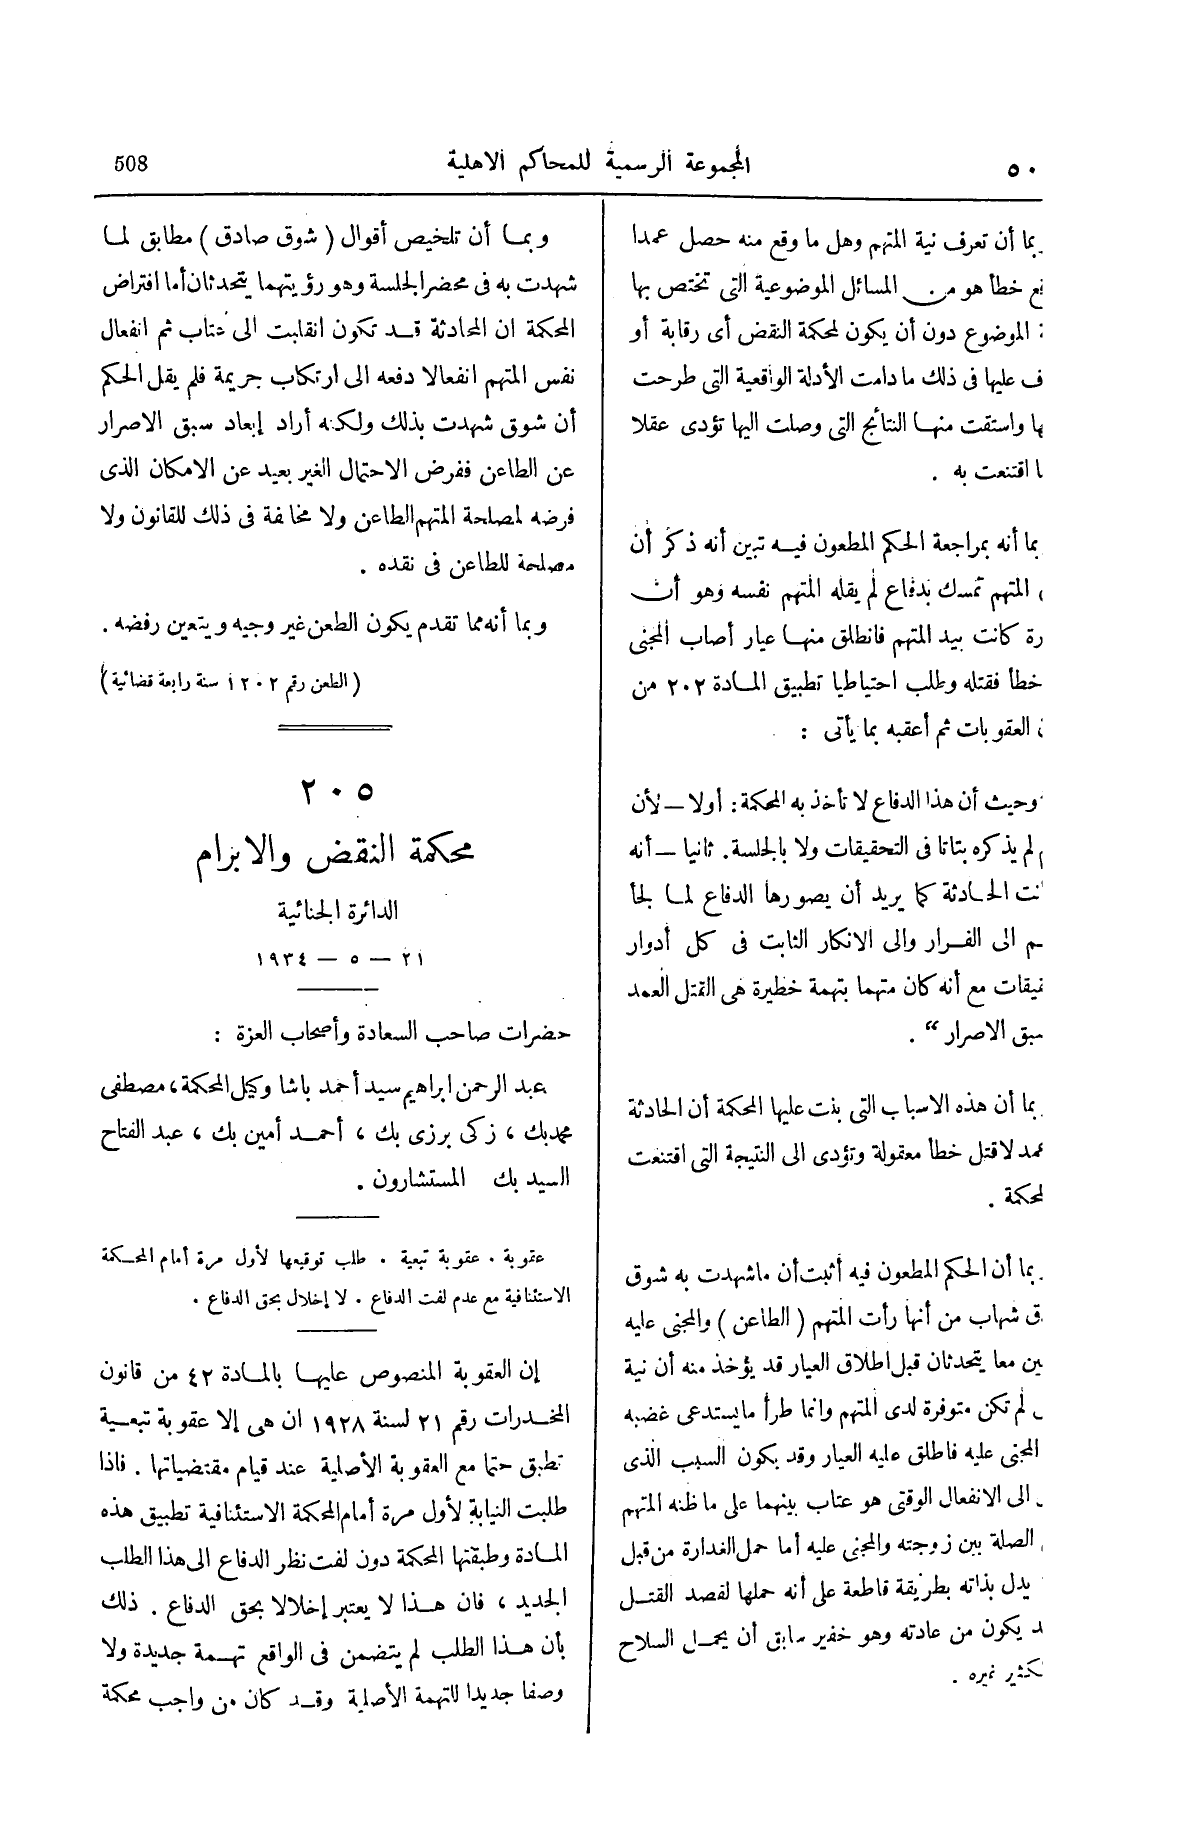 ٥٠ المجموعة الرسمية للمحاكم الاهلية 508
بما أن تعرف نية المتهم وهل ما وقع منه حصل عمدا
خطأ هو من المسائل الموضوعية التى تختص بها
الموضوع دون أن يكون لمحكمة النقض أى رقابة أو
عليها فى ذلك مادامت الأدلة الواقعية التى طرحت
واستقت منها النتائج التى وصلت اليها تؤدى عقلا
اقتنعت به .
بما أنه بمراجعة الحكم المطعون فيه تبين أنه ذكر أن
المتهم تمسك بدفاع لم يقله المتهم نفسه وهو أن
رة كانت بيد المتهم فانطلق منها عيار أصاب المجنى
خطأ فقتله وطلب احتياطيا تطبيق المادة ٢٠٢ من
العقوبات ثم أعقبه بما يأتى :
وحيث أن هذا الدفاع لا تأخذ به المحكمة : أولا — لأن
لم يذكره بتاتا فى التحقيقات ولا بالجلسة . ثانيا — أنه
نت الحادثة كما يريد أن يصورها الدفاع لما لجأ
م الى الفرار والى الانكار الثابت فى كل أدوار
قيقات مع أنه كان متهما بتهمة خطيرة هى القتل العمد
سبق الاصرار “ .
بما أن هذه الاسباب التى بنت عليها المحكمة أن الحادثة
عمد لا قتل خطأ معقولة وتؤدى الى النتيجة التى اقتنعت
لمحكمة .
بما أن الحكم المطعون فيه أثبت أن ماشهدت به شوق
ق شهاب من أنها رأت المتهم ( الطاعن ) والمجنى عليه
ين معا يتحدثان قبل اطلاق العيار قد يؤخذ منه أن نية
لم تكن متوفرة لدى المتهم وانما طرأ مايستدعى غضبه
المجنى عليه فاطلق عليه العيار وقد يكون السبب الذى
الى الانفعال الوقتى هو عتاب بينهما على ماظنه المتهم
الصلة بين زوجته والمجنى عليه أما حمل الغدارة من قبل
يدل بذاته بطريقة قاطعة على أنه حملها لقصد القتل
د يكون من عادته وهو خفير سابق أن يحمل السلاح
كثير غيره .
وبما أن تلخيص أقوال ( شوق صادق ) مطابق لما
شهدت به فى محضر الجلسة وهو رؤيتهما يتحدثان أما افتراض
المحكمة ان المحادثة قد تكون انقلبت الى عتاب ثم انفعال
نفس المتهم انفعالا دفعه الى ارتكاب جريمة فلم يقل الحكم
أن شوق شهدت بذلك ولكنه أراد إبعاد سبق الاصرار
عن الطاعن ففرض الاحتمال الغير بعيد عن الامكان الذى
فرضه لمصلحة المتهم الطاعن ولا مخالفة فى ذلك للقانون ولا
مصلحة للطاعن فى نقده .
وبما أنه مما تقدم يكون الطعن غير وجيه ويتعين رفضه .
( الطعن رقم ١٢٠٢ سنة رابعة قضائية )
٢٠٥
محكمة النقض والابرام
الدائرة الجنائية
٢١ — ٥ — ١٩٣٤
حضرات صاحب السعادة وأصحاب العزة :
عبد الرحمن ابراهيم سيد أحمد باشا وكيل المحكمة ، مصطفى
محمد بك ، زكى برزى بك ، أحمد أمين بك ، عبد الفتاح
السيد بك المستشارون .
عقوبة . عقوبة تبعية . طلب توقيعها لأول مرة أمام المحكمة
الاستئنافية مع عدم لفت الدفاع . لا إخلال بحق الدفاع .
إن العقوبة المنصوص عليها بالمادة ٤٢ من قانون
المخدرات رقم ٢١ لسنة ١٩٢٨ ان هى إلا عقوبة تبعية
تطبق حتما مع العقوبة الأصلية عند قيام مقتضياتها . فاذا
طلبت النيابة لأول مرة أمام المحكمة الاستئنافية تطبيق هذه
المادة وطبقتها المحكمة دون لفت نظر الدفاع الى هذا الطلب
الجديد ، فان هذا لا يعتبر إخلالا بحق الدفاع . ذلك
بأن هذا الطلب لم يتضمن فى الواقع تهمة جديدة ولا
وصفا جديدا للتهمة الأصلية وقد كان من واجب محكمة